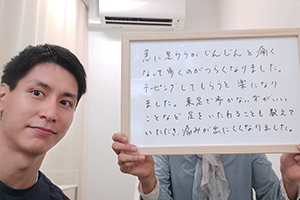 急に足のうらがじんじんと痛く
なって歩くのがつらくなりました。
テーピングしてもらうと楽になり
ました。素足で歩かない方がいい
ことなど足をいたわることも教えて
いただき、痛みが出にくくなりました。